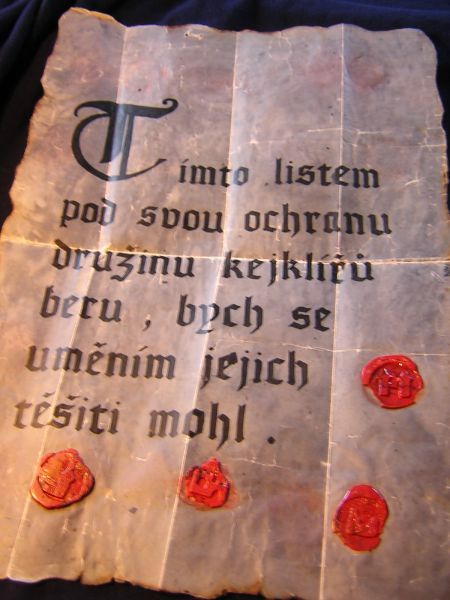 Tímto listem
pod svou ochranu
družinu kejklířů
beru , bych se
uměním jejich
těšiti mohl .